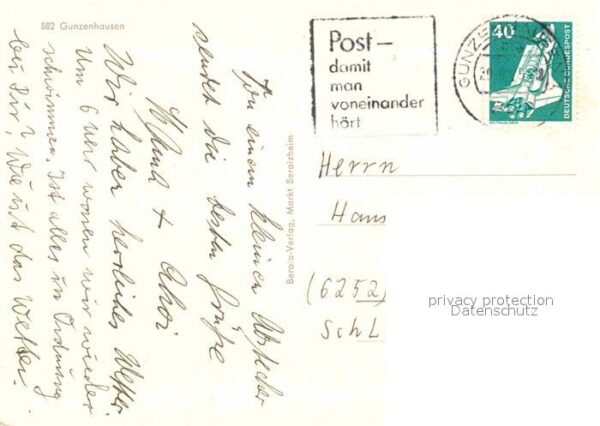 882 Gunzenhausen
Von einem kleinen Abstecher
sendet die besten Grüße
Wir haben herrliches Wetter.
Um 6 Uhr waren wir wieder
schwimmen. Ist alles in Ordnung
bei Dir? Wie ist das Wetter?
Bero-o-Verlag, Markt Berolzheim
Post –
damit
man
voneinander
hört
GUNZENHAUSEN
40
DEUTSCHE BUNDESPOST
Herrn
Hans
(6252)
Schl
privacy protection
Datenschutz